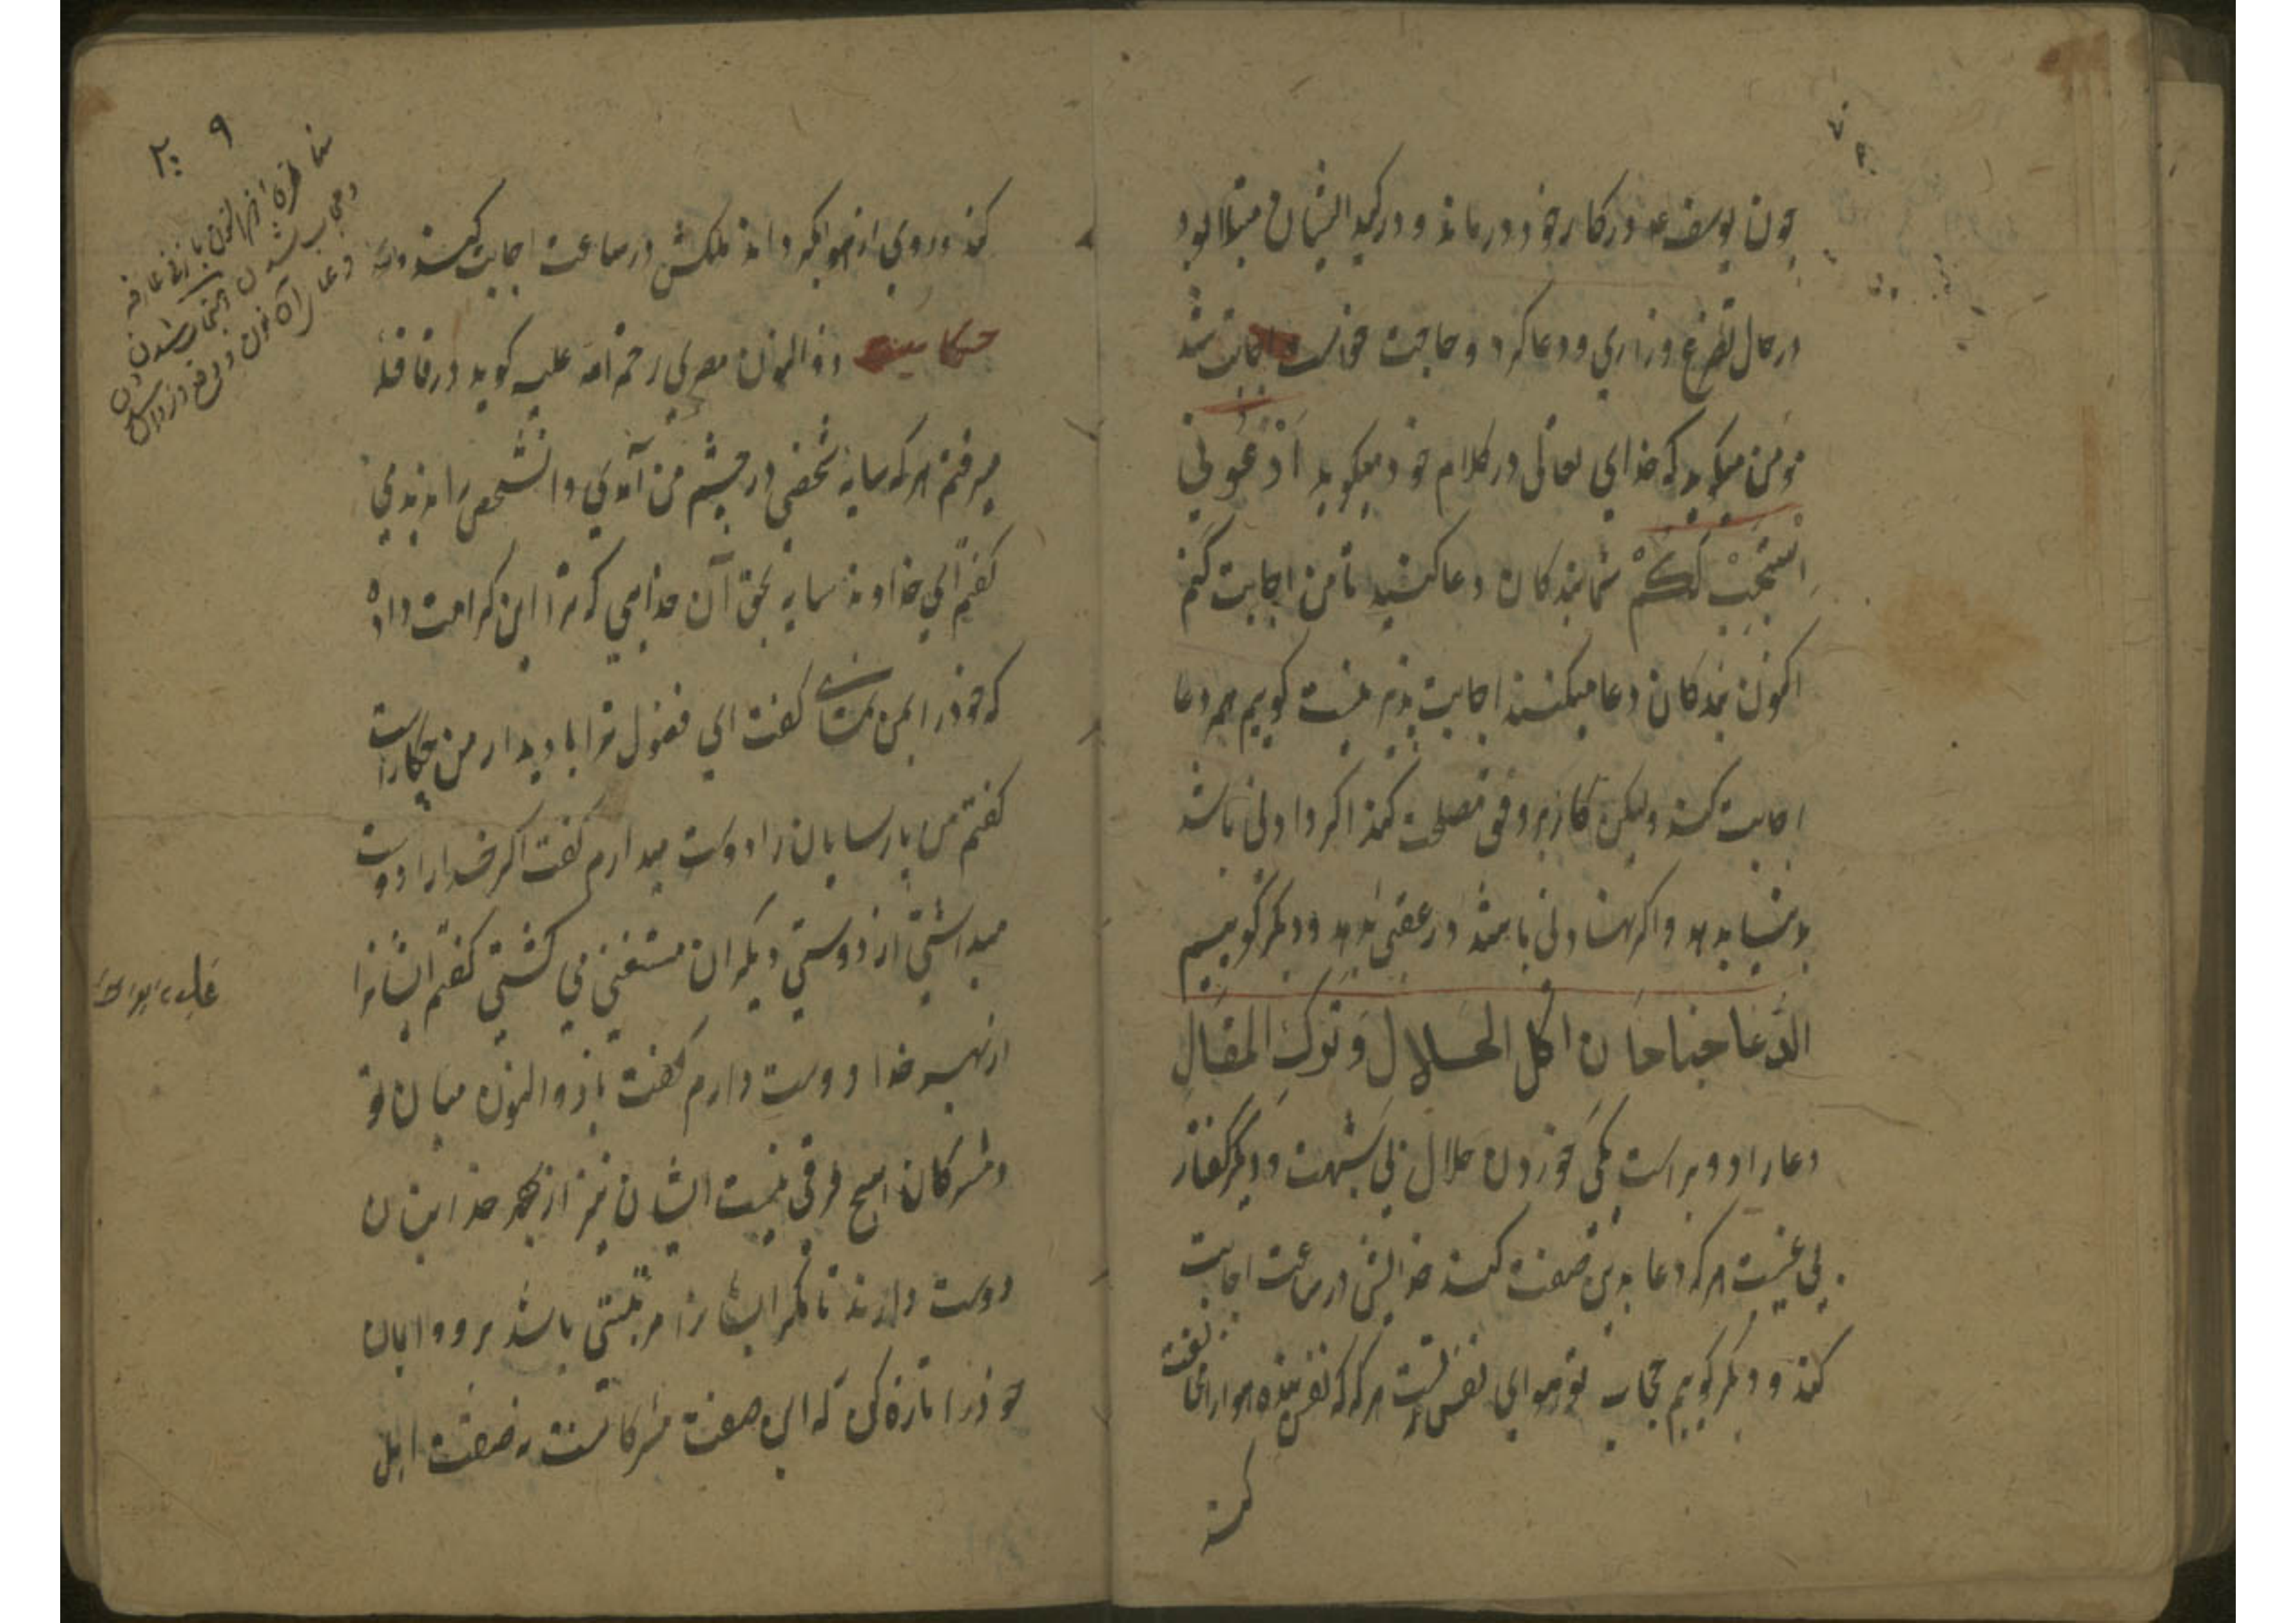 چون یوسف عم در کار خود درماند و در کید ایشان مبتلا بود
در حال تضرع و زاری و دعا کرد و حاجت خواست اجابت شد
مؤمن میکوید که خدای تعالی در کلام خود میکوید اُدْعُونی
اَسْتَجِبْ لَکُمْ شما بندکان دعا کنید تا من اجابت کنم
اکنون بندکان دعا میکنند اجابت پذیر نیست کوییم هم دعا
اجابت کند ولیکن کار بر وفق مصلحت کند اکر دادنی باشد
بدنیا بدهد و اکر نهادنی باشد در عقبی بدهد و دیکر کوییم
الدُّعا جناحان اکل الحلال وَتَرک المقال
دعا را دو پر است یکی خوردن حلال بی شبهت و دیکر کفتار
بی غیبت هر که دعا بدین صفت کند خدایش در ساعت اجابت
کند و دیکر کوییم حجاب تو هوای نفس تست هر که که نفس بنده هوا را مخالفت
کند
۲۰۹
کند و روی از هوا بکرداند ملکش در ساعت اجابت کند
حکایت ذوالنون مصری رحمة الله علیه کوید در قافله
میرفتم هر که سایه شخصی در چشم من آمدی و آن شخص را ندیدمی
کفتم ای خداوند سایه بحق آن خدایی که ترا این کرامت داده
که خود را بمن نمای کفت ای فضول ترا با دیدار من چکار است
کفتم من پارسایان را دوست میدارم کفت اکر خدا را دوست
میداشتی از دوستی دیکران مستغنی می کشتی کفتم ایشانرا
از بهر خدا دوست دارم کفت یا ذوالنون میان تو
و مشرکان هیچ فرقی نیست ایشان نیز از بهر خدا بتان
دوست دارند تا مکر ایشانرا مرتبتی باشد برو و ایمان
خود را تازه کن که این صفت مشرکانست نه صفت اهل